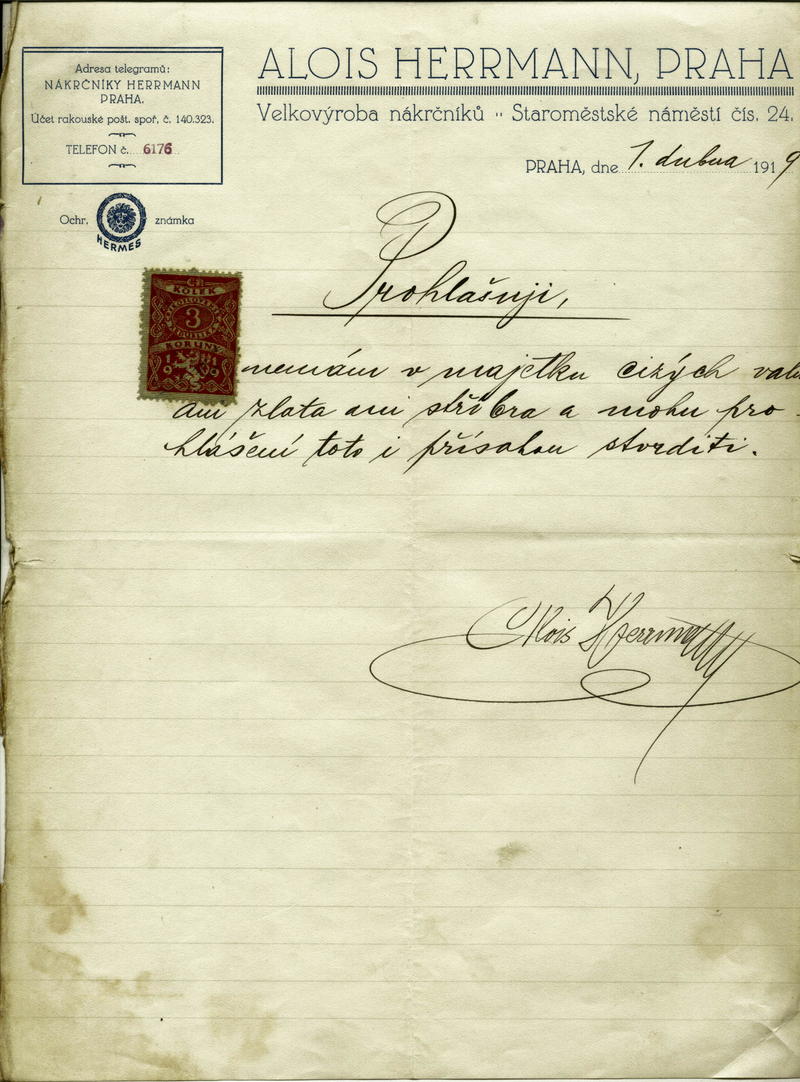 Adresa telegramů:
NÁKRČNÍKY HERRMANN
PRAHA.
Účet rakouské pošt. spoř. č. 140.323.
TELEFON č. 6176
Ochr. známka
HERMES
ALOIS HERRMANN, PRAHA
Velkovýroba nákrčníků " Staroměstské náměstí čís. 24.
PRAHA, dne 1. dubna 1919
Prohlašuji,
KOLEK
3
KORUNY
1919
nemám v majetku cizých valu
ani zlata ani stříbra a mohu pro-
hlášení toto i přísahou stvrditi.
Alois Herrmann